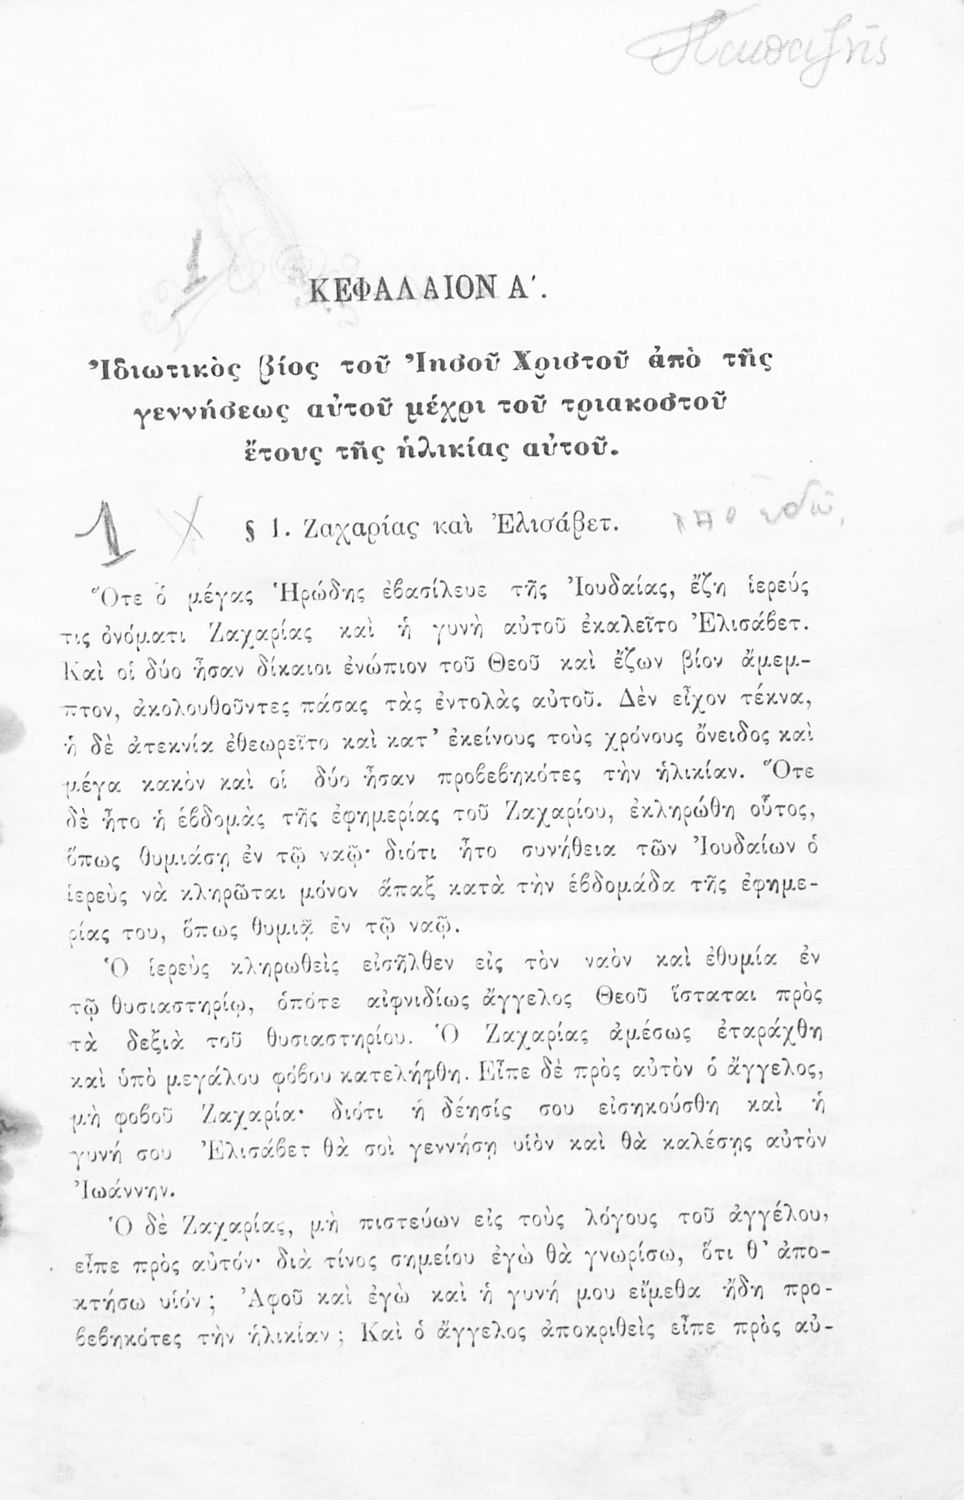 ΚΕΦΑΛΑΙΟΝ Α΄.
Ἰδιωτικὸς βίος τοῦ Ἰησοῦ Χριστοῦ ἀπὸ τῆς
γεννήσεως αὐτοῦ μέχρι τοῦ τριακοστοῦ
ἔτους τῆς ἡλικίας αὐτοῦ.
1
§ 1. Ζαχαρίας καὶ Ἐλισάβετ.
Ὅτε ὁ μέγας Ἡρώδης ἐβασίλευε τῆς Ἰουδαίας, ἔζη ἱερεύς
τις ὀνόματι Ζαχαρίας καὶ ἡ γυνὴ αὐτοῦ ἐκαλεῖτο Ἐλισάβετ.
Καὶ οἱ δύο ἦσαν δίκαιοι ἐνώπιον τοῦ Θεοῦ καὶ ἔζων βίον ἄμεμ-
πτον, ἀκολουθοῦντες πάσας τὰς ἐντολὰς αὐτοῦ. Δὲν εἶχον τέκνα,
ἡ δὲ ἀτεκνία ἐθεωρεῖτο καὶ κατ' ἐκείνους τοὺς χρόνους ὄνειδος καὶ
μέγα κακὸν καὶ οἱ δύο ἦσαν προβεβηκότες τὴν ἡλικίαν. Ὅτε
δὲ ἦτο ἡ ἑβδομὰς τῆς ἐφημερίας τοῦ Ζαχαρίου, ἐκληρώθη οὗτος,
ὅπως θυμιάσῃ ἐν τῷ ναῷ· διότι ἦτο συνήθεια τῶν Ἰουδαίων ὁ
ἱερεὺς νὰ κληρῶται μόνον ἅπαξ κατὰ τὴν ἑβδομάδα τῆς ἐφημε-
ρίας του, ὅπως θυμιᾷ ἐν τῷ ναῷ.
Ὁ ἱερεὺς κληρωθεὶς εἰσῆλθεν εἰς τὸν ναὸν καὶ ἐθυμία ἐν
τῷ θυσιαστηρίῳ, ὁπότε αἰφνιδίως ἄγγελος Θεοῦ ἵσταται πρὸς
τὰ δεξιὰ τοῦ θυσιαστηρίου. Ὁ Ζαχαρίας ἀμέσως ἐταράχθη
καὶ ὑπὸ μεγάλου φόβου κατελήφθη. Εἶπε δὲ πρὸς αὐτὸν ὁ ἄγγελος,
μὴ φοβοῦ Ζαχαρία· διότι ἡ δέησίς σου εἰσηκούσθη καὶ ἡ
γυνή σου Ἐλισάβετ θὰ σοὶ γεννήσῃ υἱὸν καὶ θὰ καλέσῃς αὐτὸν
Ἰωάννην.
Ὁ δὲ Ζαχαρίας, μὴ πιστεύων εἰς τοὺς λόγους τοῦ ἀγγέλου,
εἶπε πρὸς αὐτόν· διὰ τίνος σημείου ἐγὼ θὰ γνωρίσω, ὅτι θ' ἀπο-
κτήσω υἱόν; Ἀφοῦ καὶ ἐγὼ καὶ ἡ γυνή μου εἴμεθα ἤδη προ-
βεβηκότες τὴν ἡλικίαν; Καὶ ὁ ἄγγελος ἀποκριθεὶς εἶπε πρὸς αὐ-